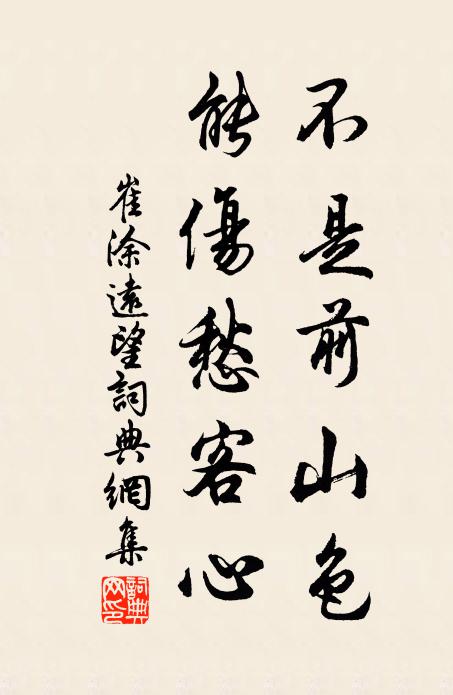 不是前山色
能傷愁客心
崔涂遠望詞典網集
詞典网印